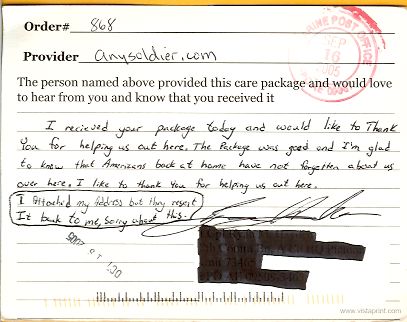 Order# 868
Provider anysoldier.com
The person named above provided this care package and would love
to hear from you and know that you received it
I recieved your package today and would like to Thank
You for helping us out here. The Package was good and I'm glad
to know that Americans back at home have not forgotten about us
over here. I like to thank You for helping us out here.
I Attached my Address but they resent
It back to me, Sorry about this.
POST OFFICE
SEP
16
www.vistaprint.com